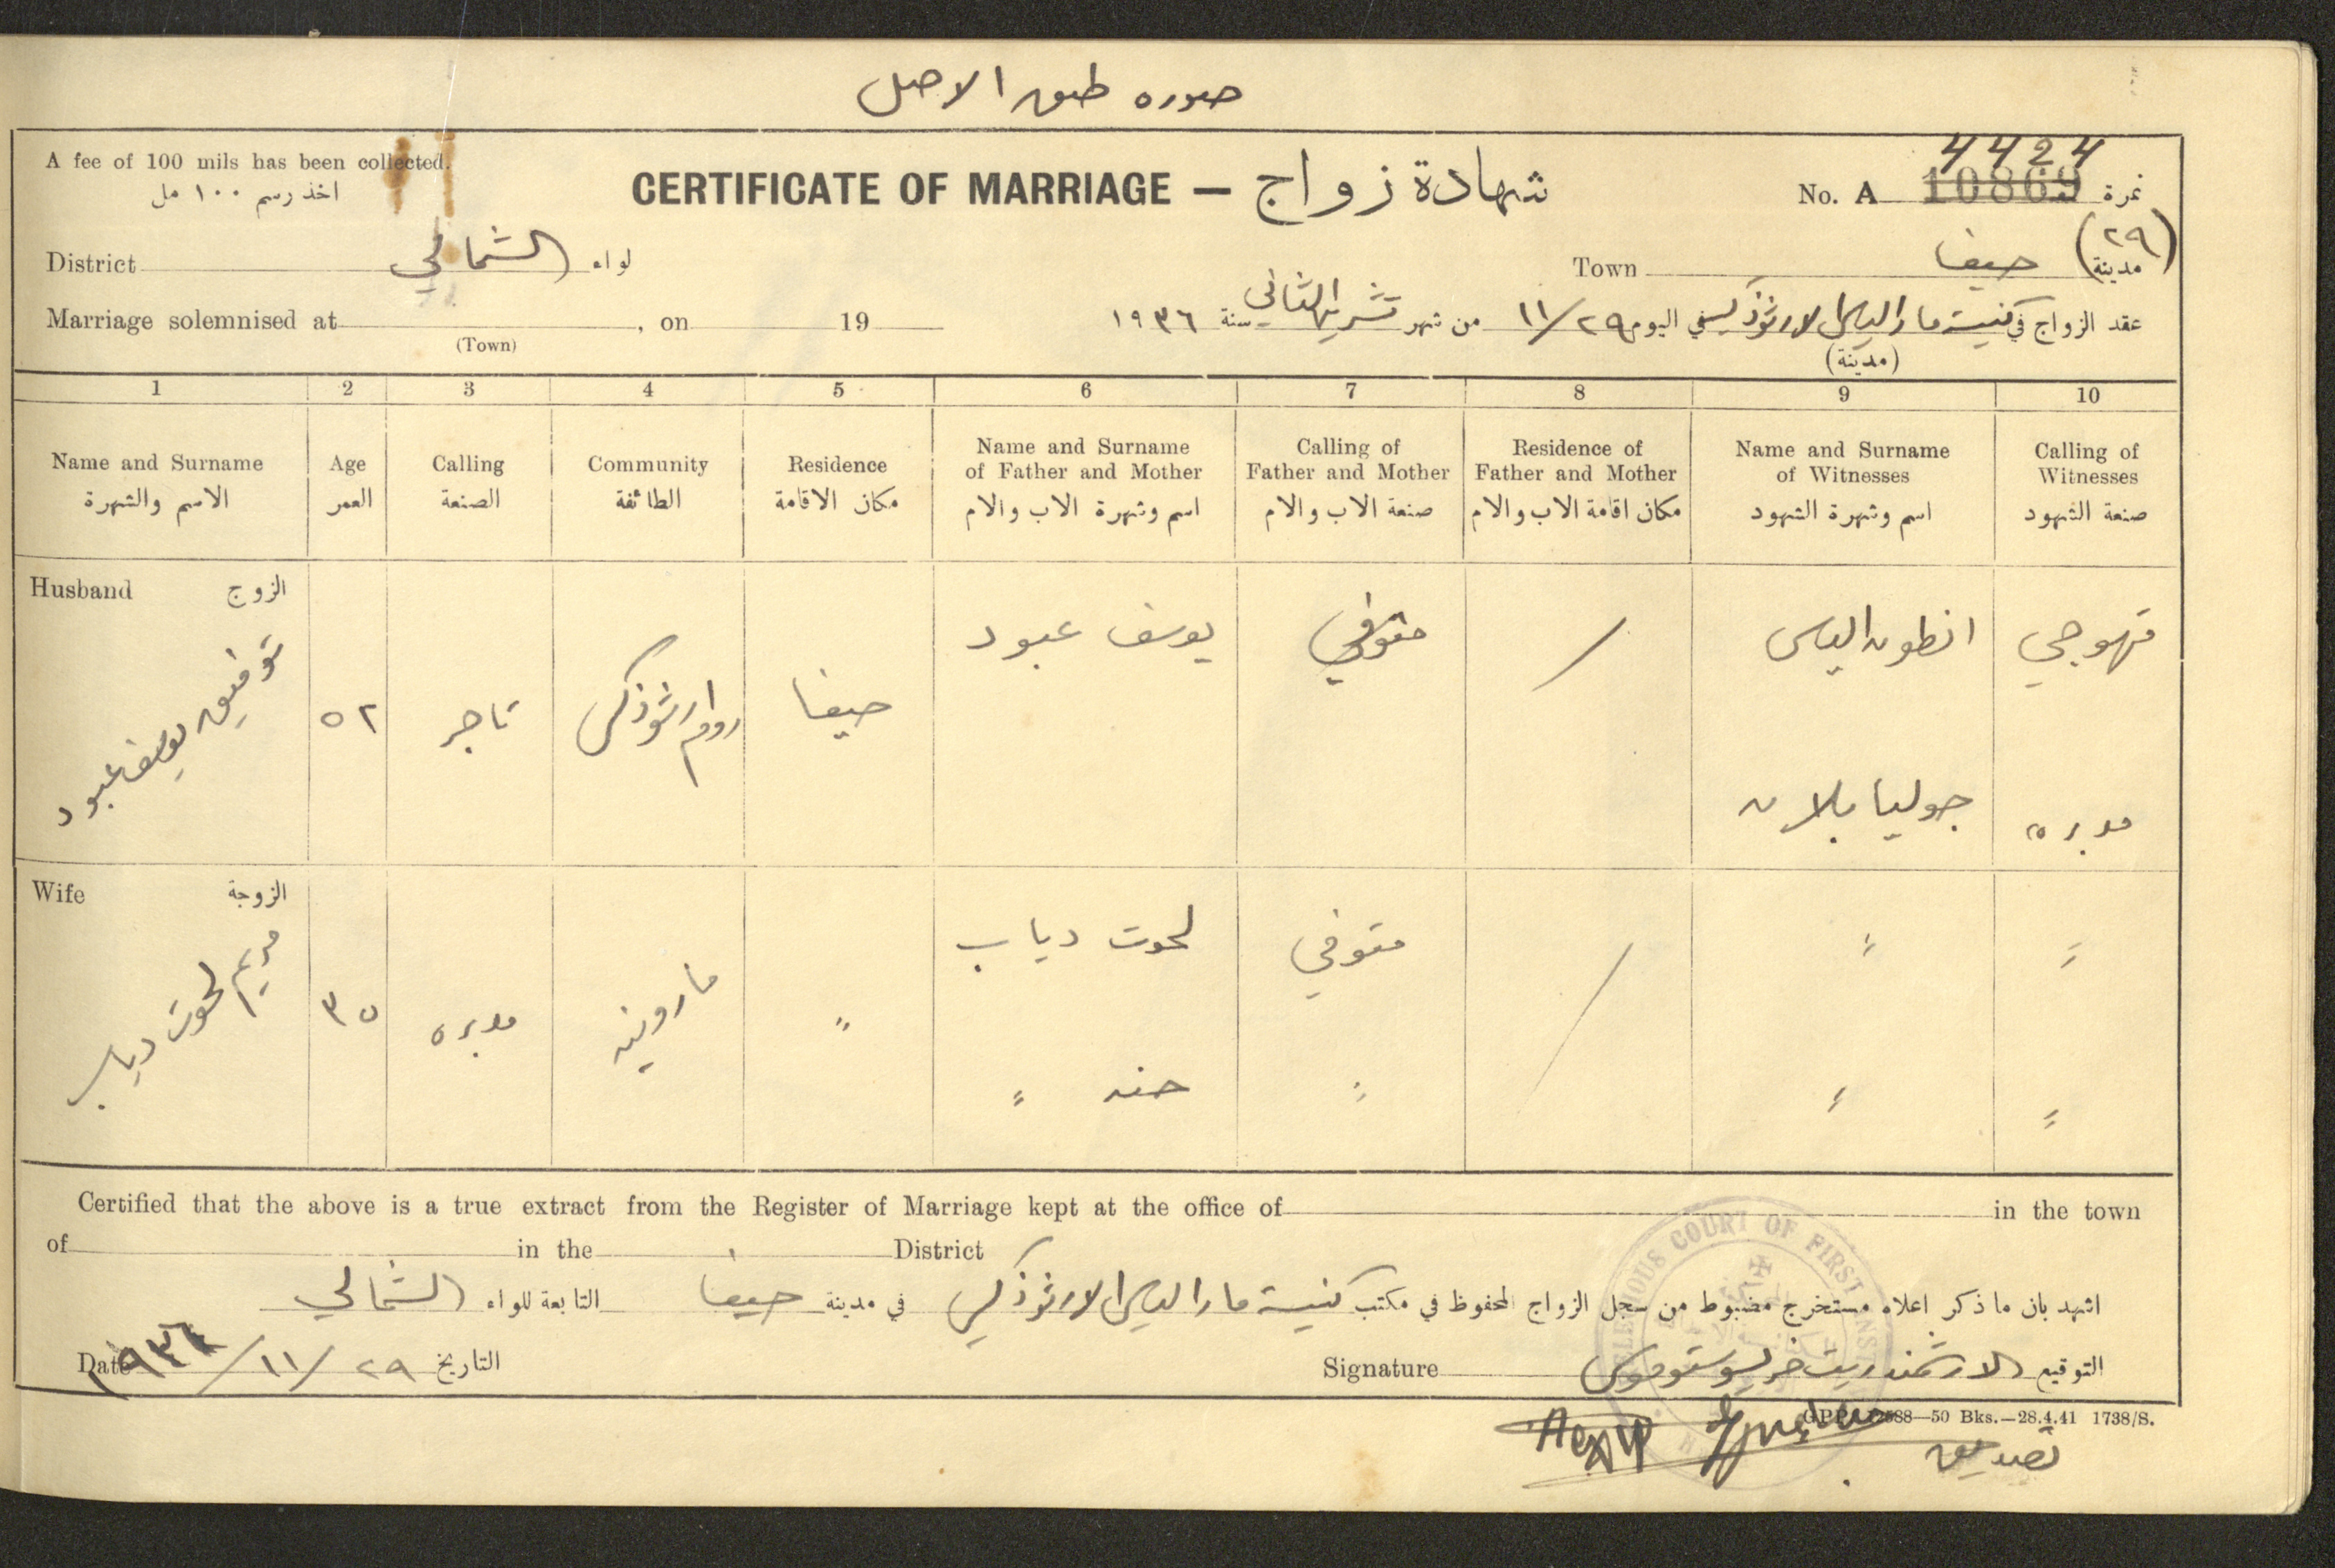 صوره طبق الاصل
A fee of 100 mils has been collected.
اخذ رسم ١٠٠ مل
CERTIFICATE OF MARRIAGE — شهادة زواج
4424
No. A 10869 نمرة
(٢٩)
District الشمالي لواء
Town حيفا مدينة
Marriage solemnised at , on 19
(Town)
عقد الزواج في كنيسة مار الياس الارثوذكسي في اليوم ٢٩/١١ من شهر تشرين الثاني سنة ١٩٣٦
(مدينة)
1 2 3 4 5 6 7 8 9 10
Name and Surname
الاسم والشهرة
Age
العمر
Calling
الصنعة
Community
الطائفة
Residence
مكان الاقامة
Name and Surname
of Father and Mother
اسم وشهرة الاب والام
Calling of
Father and Mother
صنعة الاب والام
Residence of
Father and Mother
مكان اقامة الاب والام
Name and Surname
of Witnesses
اسم وشهرة الشهود
Calling of
Witnesses
صنعة الشهود
Husband الزوج
توفيق يوسف عبود
٥٢
تاجر
روم ارثوذكس
حيفا
يوسف عبود
متوفي
/
انطون الياس
قهوجي
جوليا بلان
مدبره
Wife الزوجة
مريم لحوت دياب
٣٥
مدبره
مارونيه
"
لحوت دياب
متوفي
/
"
"
حنه "
"
"
"
Certified that the above is a true extract from the Register of Marriage kept at the office of in the town
of in the District
اشهد بان ما ذكر اعلاه مستخرج مضبوط من سجل الزواج المحفوظ في مكتب كنيسة مار الياس الارثوذكس في مدينة حيفا التابعة للواء الشمالي
Date ٢٩/١١/٩٣٦ التاريخ
Signature الارشمندريت خريسوستوموس التوقيع
RELIGIOUS COURT OF FIRST INST
G.P.P. 12688—50 Bks.—28.4.41 1738/S.
تصديق